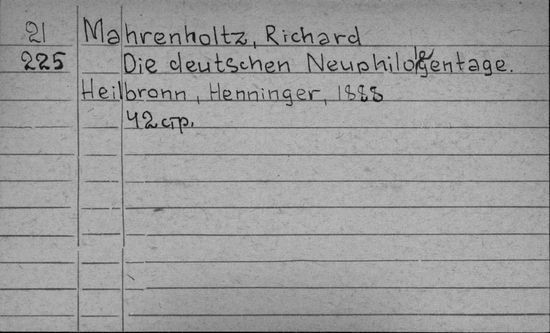 21 Mahrenholtz, Richard
225 Die deutschen Neuphilologentage.
Heilbronn, Henninger, 1888
42 стр.